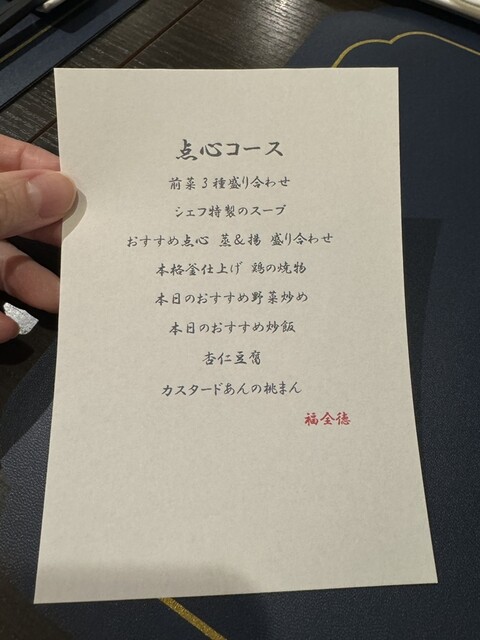 点心コース
前菜3種盛り合わせ
シェフ特製のスープ
おすすめ点心 蒸&揚 盛り合わせ
本格釜仕上げ 鶏の焼物
本日のおすすめ野菜炒め
本日のおすすめ炒飯
杏仁豆腐
カスタードあんの桃まん
福全徳